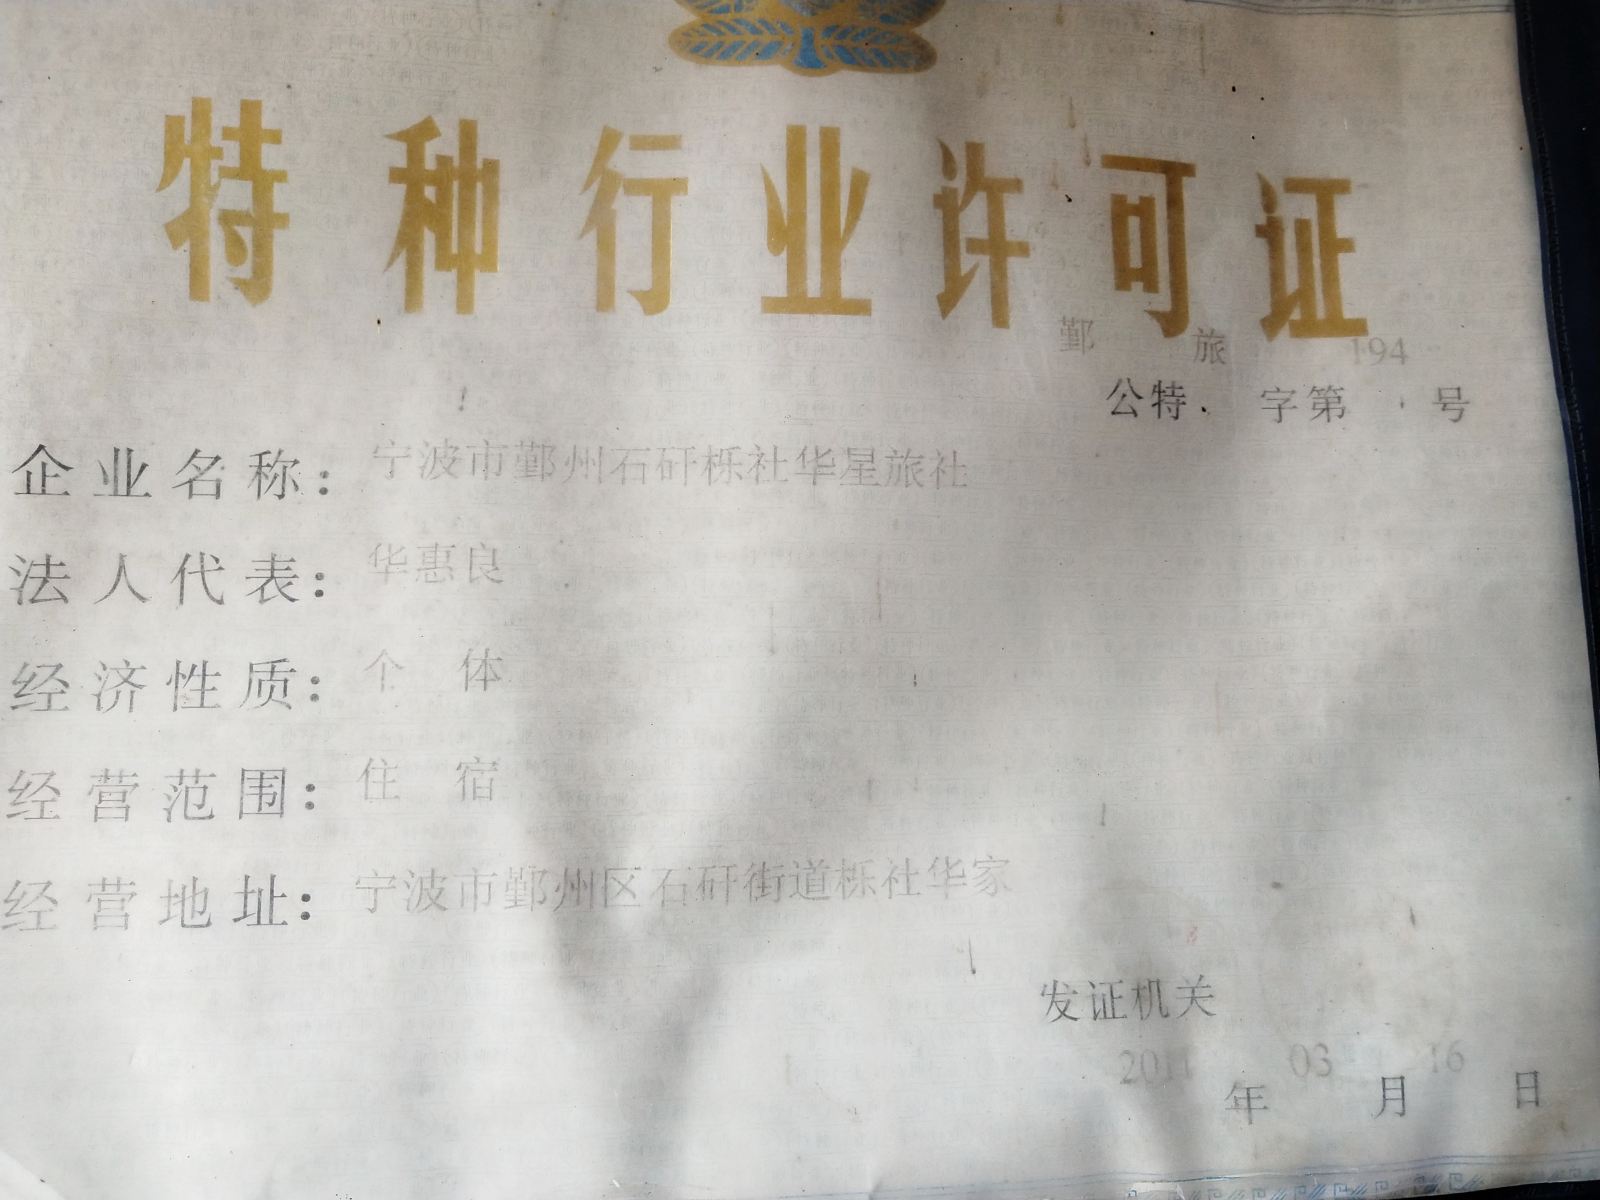 特种行业许可证
鄞 旅 194
公特 字第 号
企业名称：宁波市鄞州石矸栎社华星旅社
法人代表：华惠良
经济性质：个体
经营范围：住宿
经营地址：宁波市鄞州区石矸街道栎社华家
发证机关
2011 03 16
年 月 日